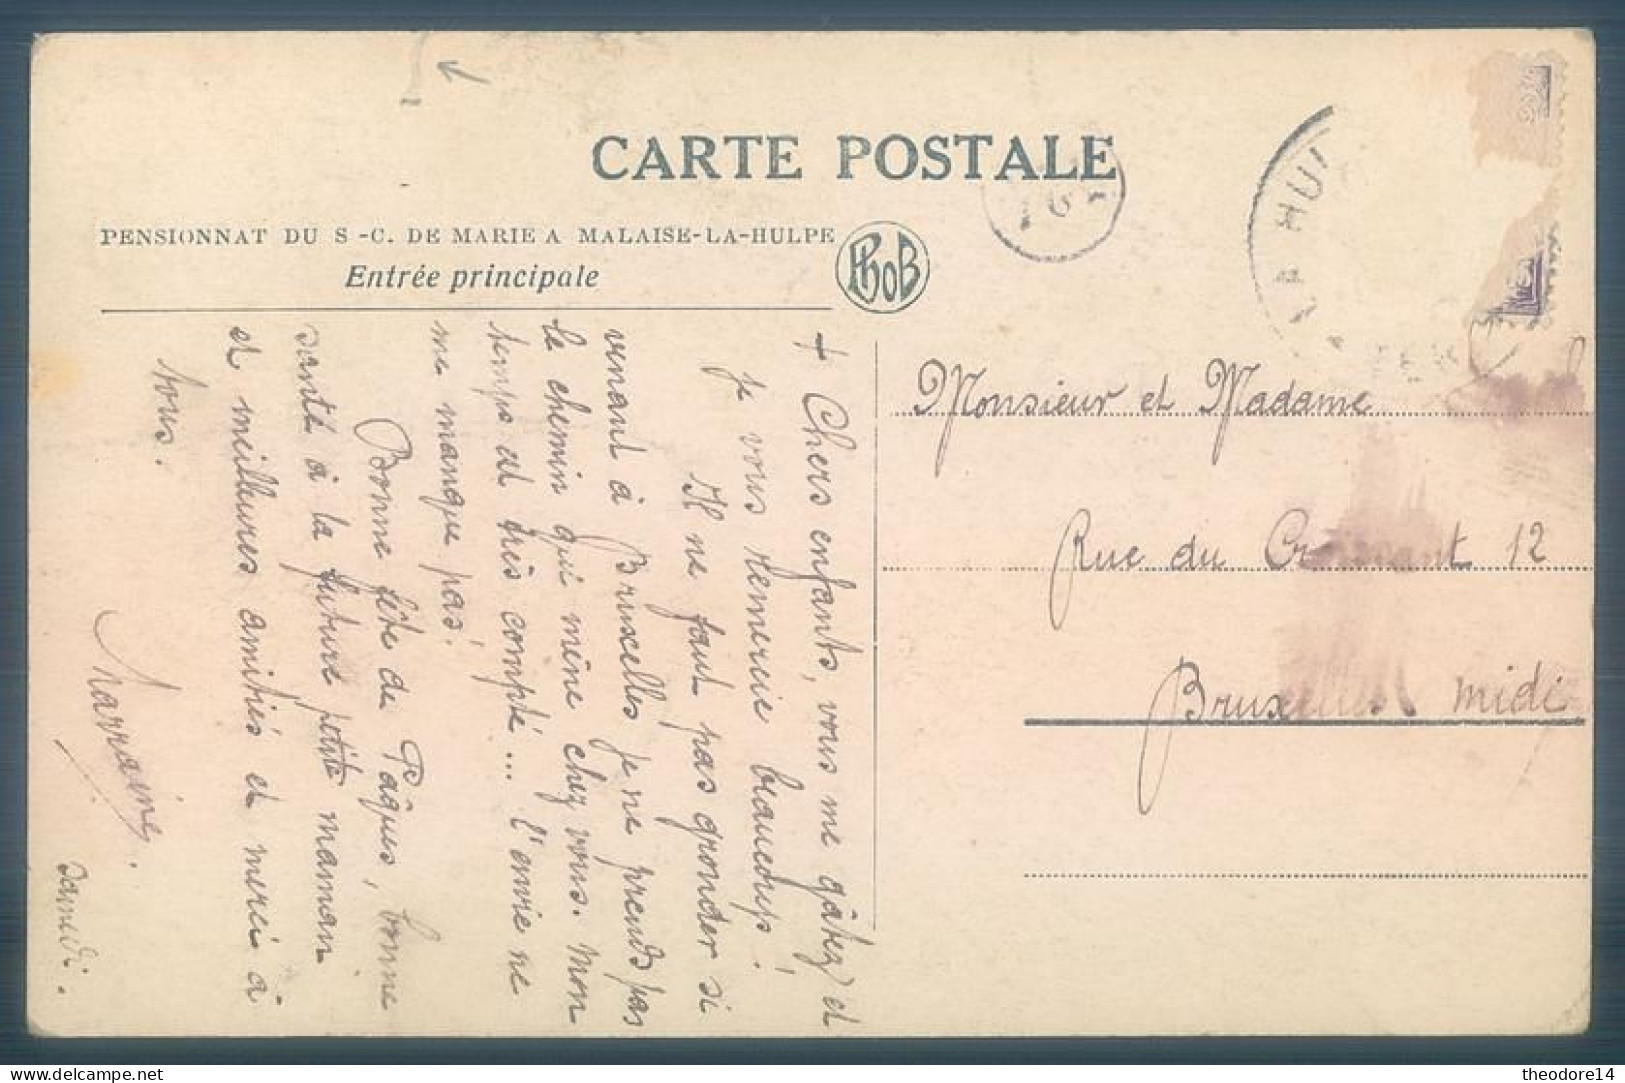 CARTE POSTALE
PENSIONNAT DU S-C. DE MARIE A MALAISE-LA-HULPE
Entrée principale
PhoB
LA HUL
+ Chers enfants, vous me gâtez et
je vous remercie beaucoup!
Il ne faut pas gronder si
venant à Bruxelles je ne prends pas
le chemin qui mène chez vous. Mon
temps est très compté... l'envie ne
me manque pas!
Bonne fête de Pâques, bonne
santé à la future petite maman
et meilleures amitiés et merci à
tous.
Marraine.
samedi.
Monsieur et Madame
Rue du Croissant 12
Bruxelles midi
delcampe.net
theodore14